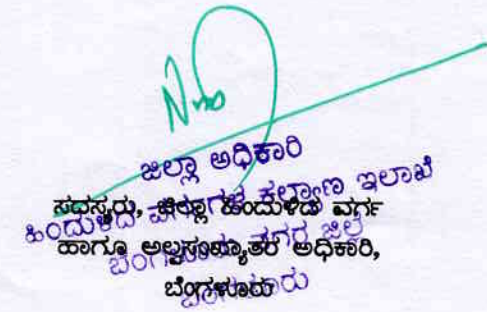 ಜಿಲ್ಲಾ ಅಧಿಕಾರಿ
ಹಿಂದುಳಿದ ವರ್ಗಗಳ ಕಲ್ಯಾಣ ಇಲಾಖೆ
ಬೆಂಗಳೂರು ನಗರ ಜಿಲ್ಲೆ
ಬೆಂಗಳೂರು
ಸದಸ್ಯರು, ಜಿಲ್ಲಾ ಹಿಂದುಳಿದ ವರ್ಗ
ಹಾಗೂ ಅಲ್ಪಸಂಖ್ಯಾತರ ಅಧಿಕಾರಿ,
ಬೆಂಗಳೂರು